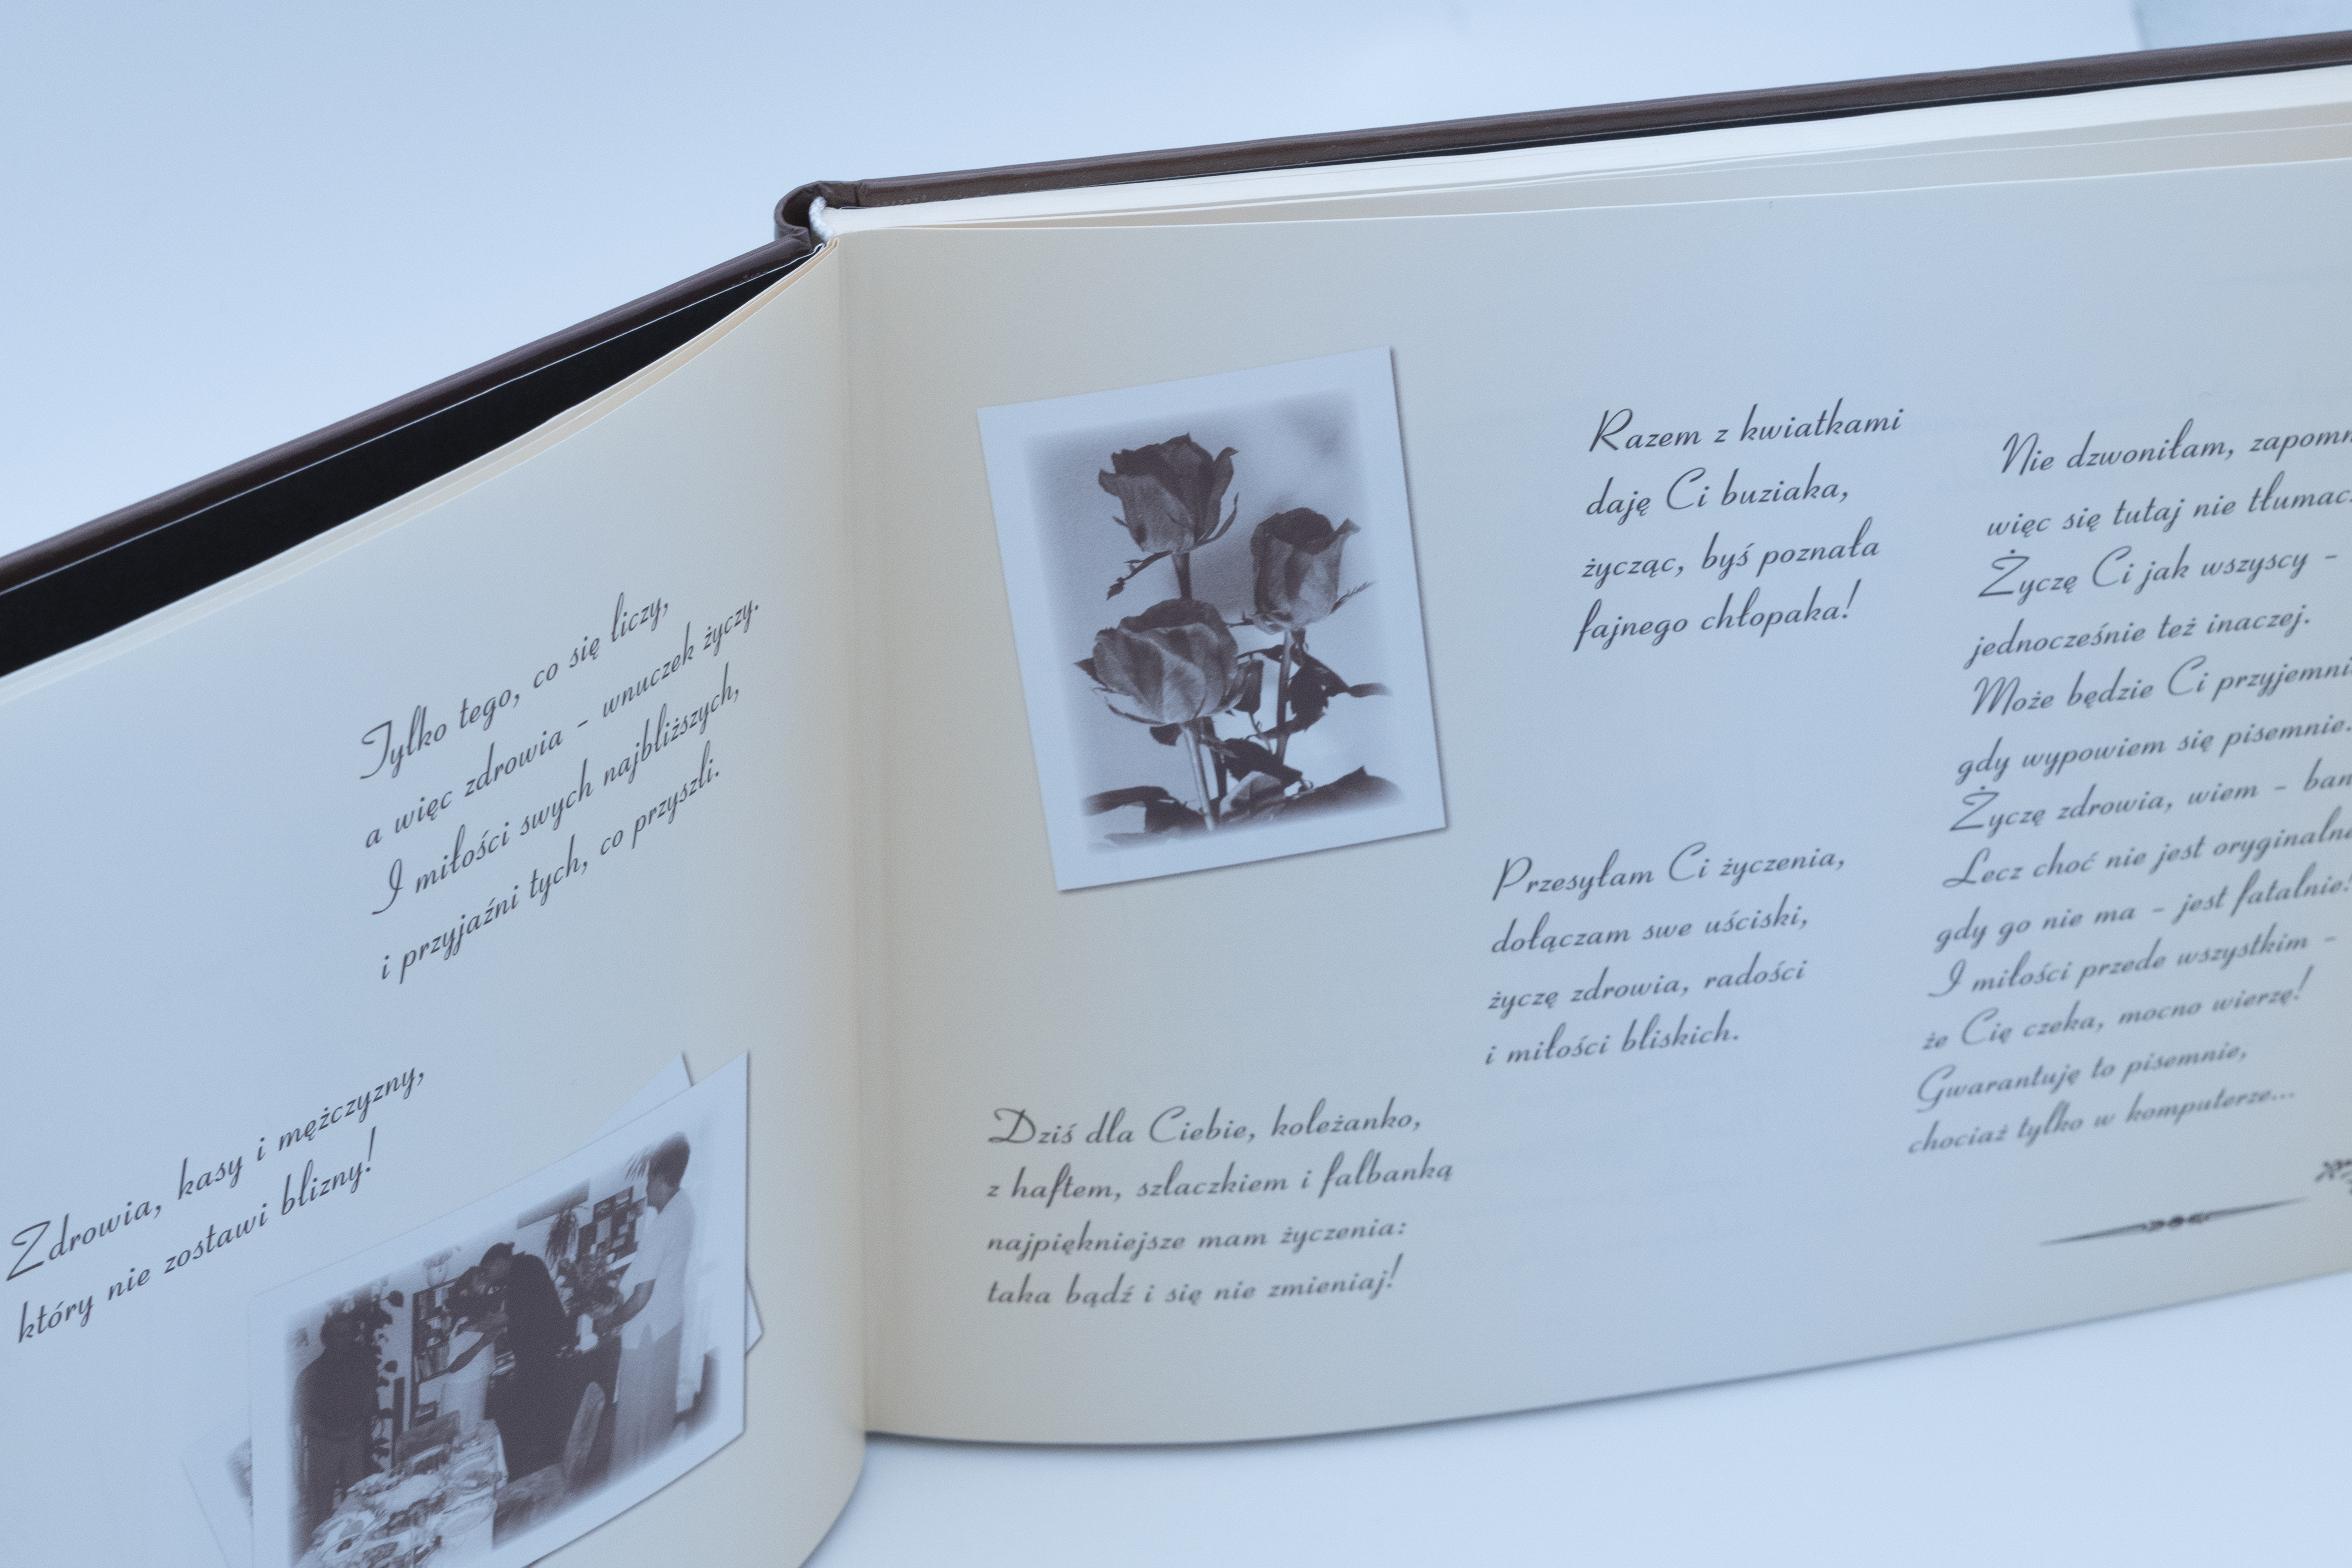 Tylko tego, co się liczy,
a więc zdrowia - wnuczek życzy.
I miłości swych najbliższych,
i przyjaźni tych, co przyszli.
Zdrowia, kasy i mężczyzny,
który nie zostawi blizny!
Dziś dla Ciebie, koleżanko,
z haftem, szlaczkiem i falbanką
najpiękniejsze mam życzenia:
taka bądź i się nie zmieniaj!
Razem z kwiatkami
daję Ci buziaka,
życząc, byś poznała
fajnego chłopaka!
Przesyłam Ci życzenia,
dołączam swe uściski,
życzę zdrowia, radości
i miłości bliskich.
Nie dzwoniłam,
więc się tutaj nie
Życzę Ci jak wszyscy -
jednocześnie też inaczej.
Może będzie Ci
gdy wypowiem się pisemnie.
Życzę zdrowia, wiem -
Lecz choć nie jest
gdy go nie ma - jest fatalnie!
I miłości przede wszystkim -
że Cię czeka, mocno wierzę!
Gwarantuję to pisemnie,
chociaż tylko w komputerze...